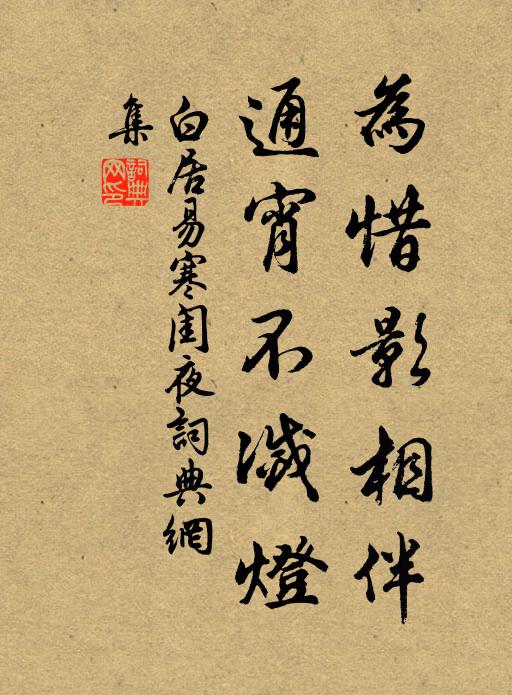 為惜影相伴
通宵不滅燈
白居易寒閨夜詞典網
集
詞典
网印